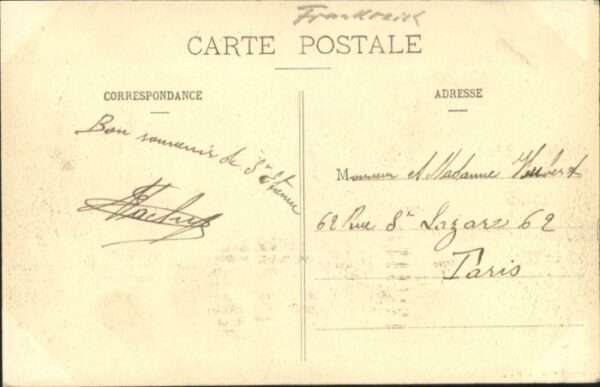 Frankreich
CARTE POSTALE
CORRESPONDANCE
Bon souvenir de St Etienne
ADRESSE
Monsieur et Madame
62 Rue St Lazare 62
Paris